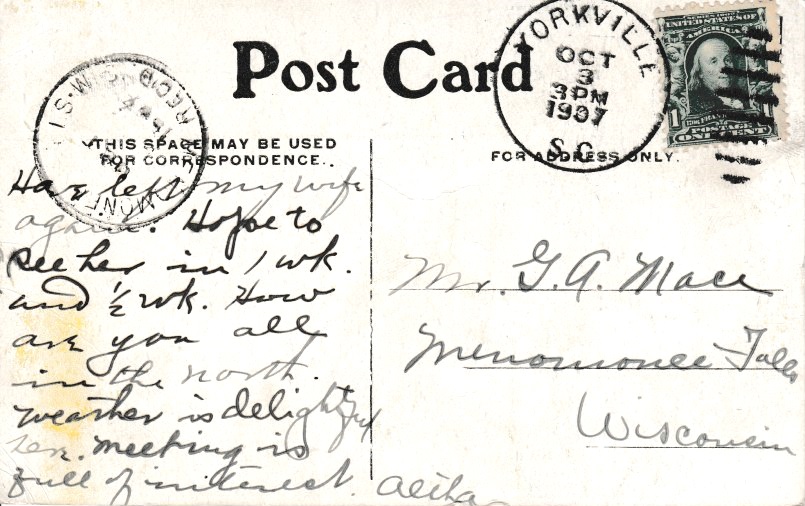 Post Card
YORKVILLE
OCT
3
3PM
1907
S.C.
UNITED STATES OF
AMERICA
1
POSTAGE
ONE CENT
REC'D
WIS.
THIS SPACE MAY BE USED
FOR CORRESPONDENCE.
FOR ADDRESS ONLY.
Have left my wife
again. Hope to
see her in 1 wk.
and ½ wk. How
are you all
in the north.
weather is delightful
here. meeting is
full of interest.
Mr. G. A. Mace
Menomonee Falls
Wisconsin